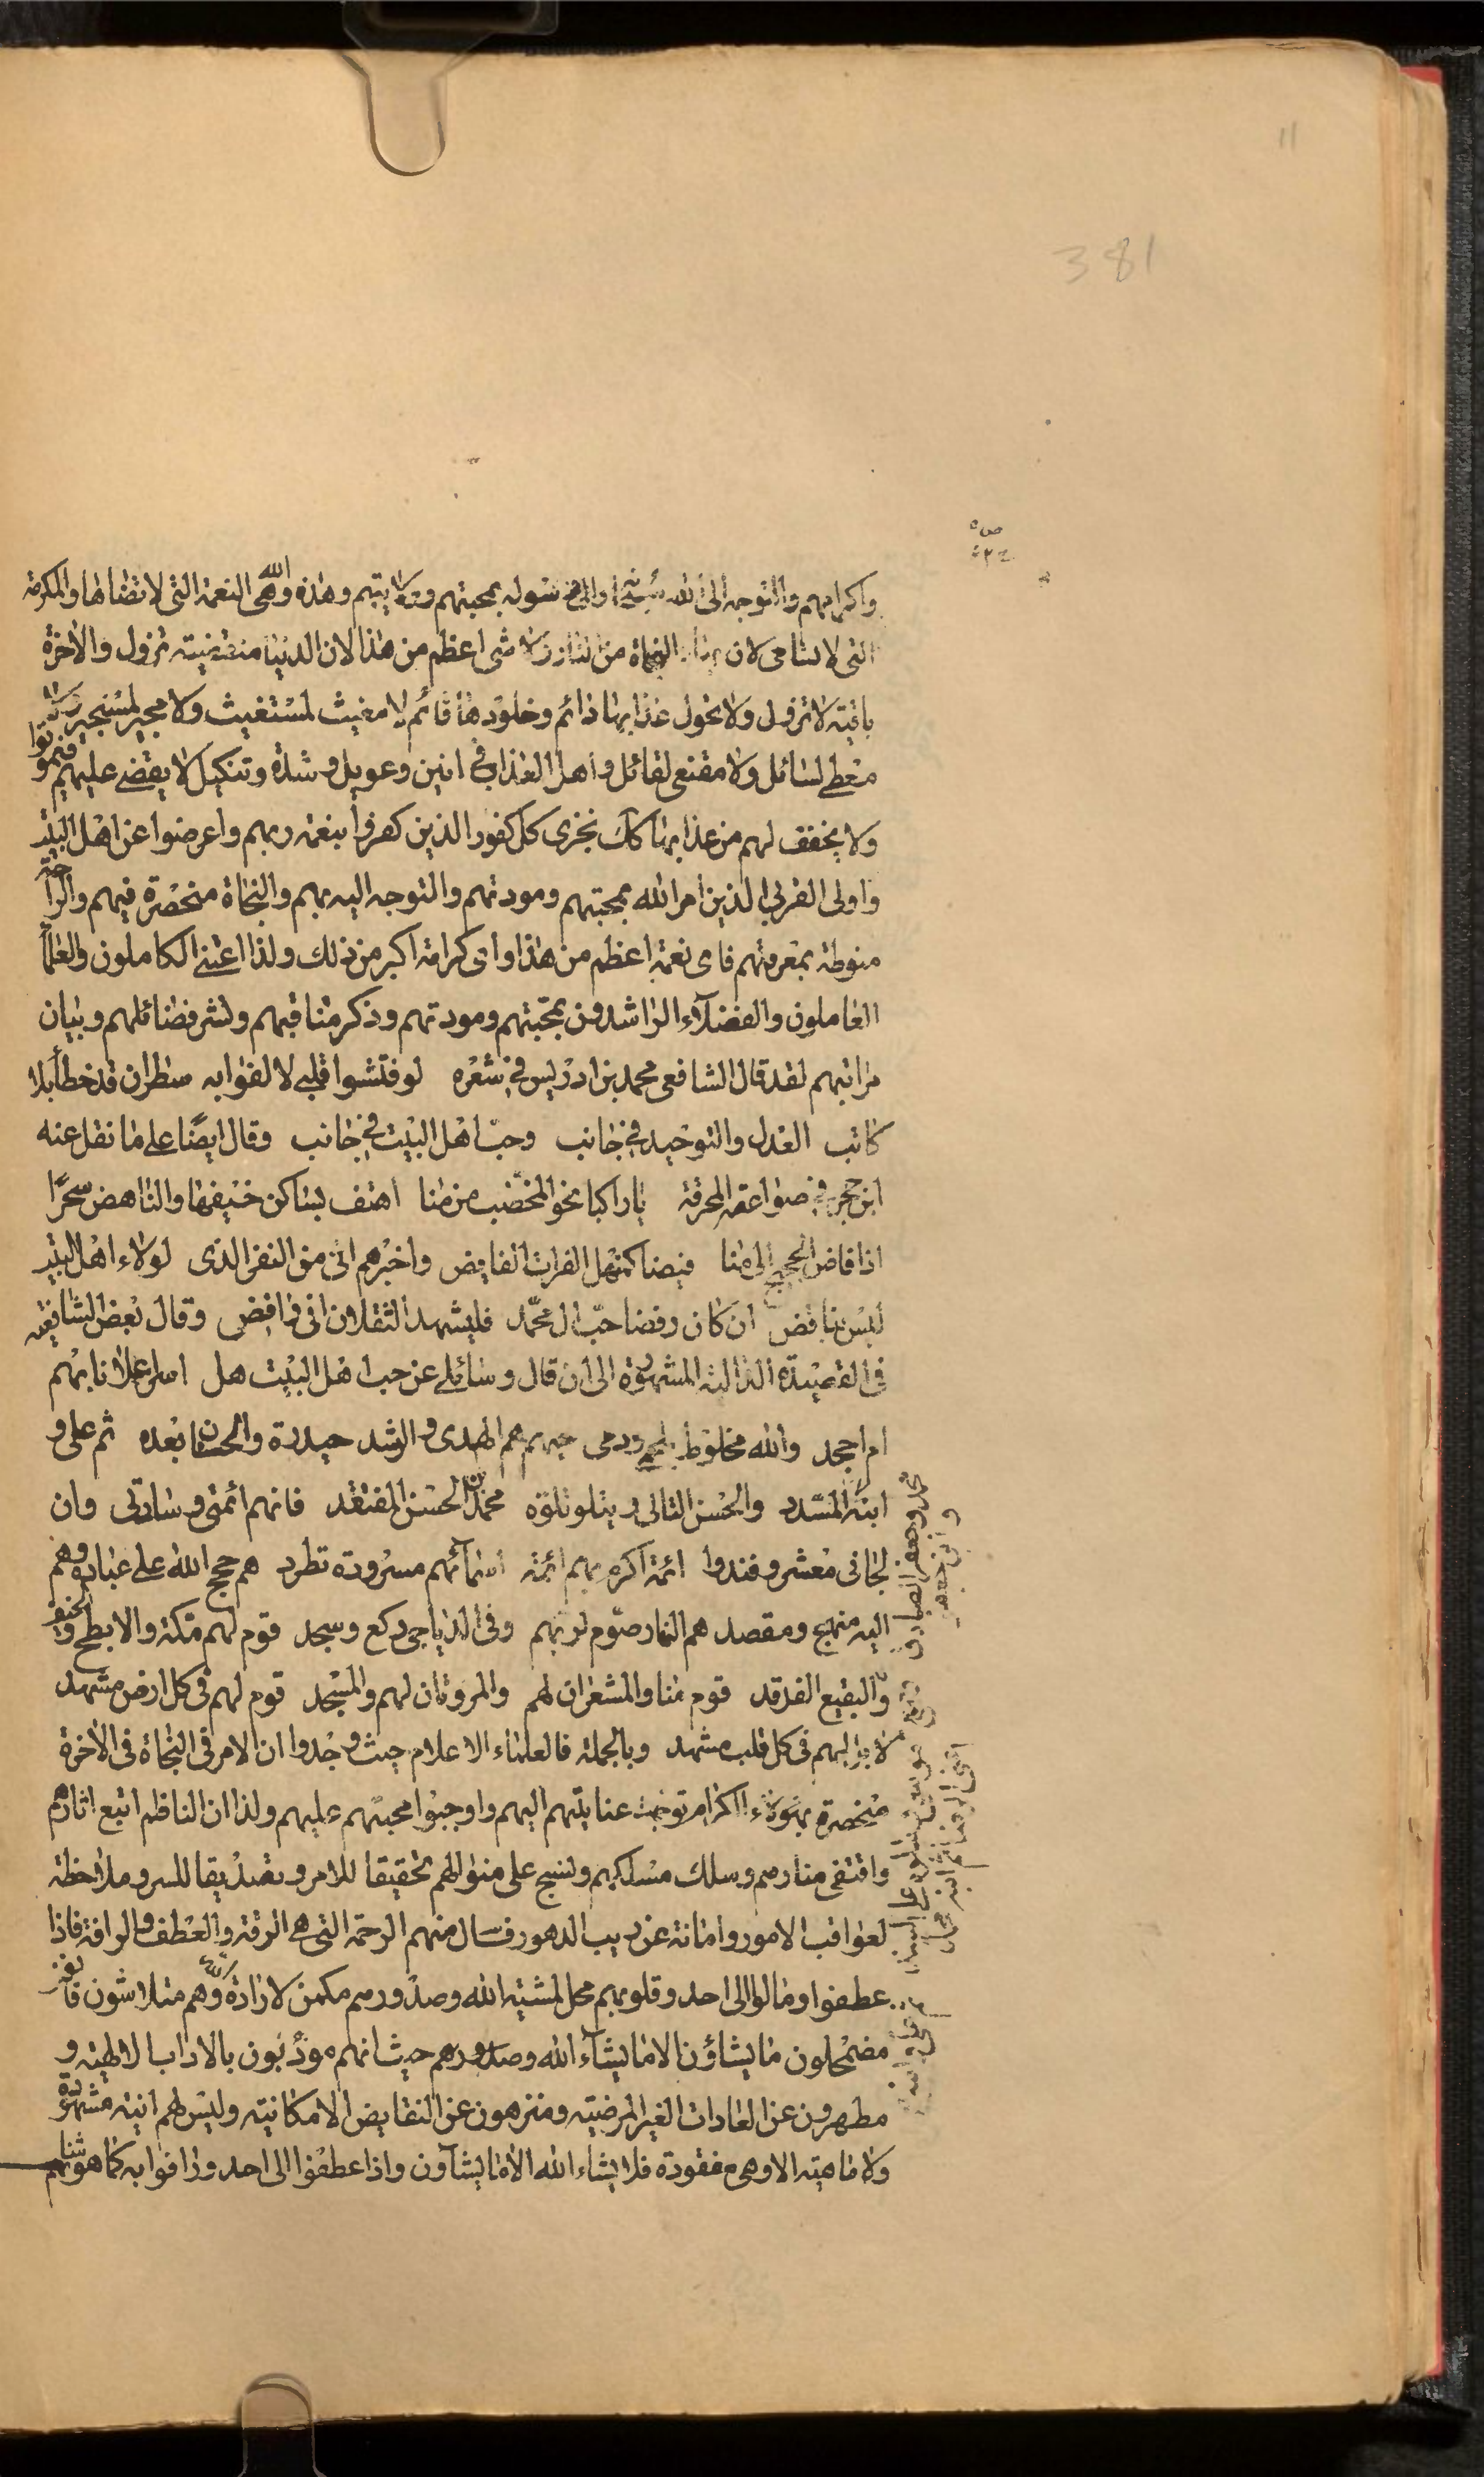 11
381
واكرامهم والتوجه الى الله سبحانه والى رسوله بمحبتهم وولايتهم وهذه والله هى النعمة التى لا تضاها والمكرمة
التى لا تسامى لان النجاة من شى اعظم من هذا لان الدنيا منقضيته تزول والاخرة
باقية لا تزول ولا تحول عذابها دائم وخلودها قائم لا مغيث لمستغيث ولا مجير لمستجير ولا
معطى لسائل ولا مقنع لقائل واهل العذاب فى انين وعويل وشدة وتنكيل لا يقضى عليهم فيموتوا
ولا يخفف لهم من عذابها كذلك نجزى كل كفور الذين كفروا بنعمة ربهم واعرضوا عن اهل البيت
واولى القربى الذين امر الله بمحبتهم ومودتهم والتوجه اليه بهم والنجاة منحصرة فيهم والراحة
منوطة بمعرفتهم فاى نعمة اعظم من هذا واى كرامة اكبر من ذلك ولذا اعتنى الكاملون والعلماء
العاملون والفضلاء الراشدون بمحبتهم ومودتهم وذكر مناقبهم ونشر فضائلهم وبيان
مراتبهم لقد قال الشافعى محمد بن ادريس فى شعره لو فتشوا قلبى لالفوا به سطران قد خطا بلا
كاتب العدل والتوحيد فى جانب وحب اهل البيت فى جانب وقال ايضا على ما نقل عنه
ابن حجر فى صواعقه المحرقة يا راكبا نحو المخصب من منا اهتف بساكن خيفها والناهض سحرًا
اذا فاض الحجيج الى منا فيضا كمنهل الفرات الفايض واخبرهم انى من النفر الذى لولاء اهل البيت
ليس بناقض ان كان رفضا حب ال محمد فليشهد الثقلان انى رافضى وقال بعض الشافعية
فى القصيدة الدالية المشهورة الى ان قال وسائلى عن حب اهل البيت هل اسر اعلانا بهم
ام اجحد والله مخلوط بلحمى ودمى حبهم هم الهدى والرشد حيدرة والحسنان بعده ثم على و
ابنه المسدد والحسن التالى ويتلو تلوه محمد بن الحسن المفتقد فانهم ائمتى وسادتى وان
لحانى معشر وفندوا ائمة اكرم بهم ائمة اسمائهم مسرودة تطرد هم حجج الله على عباده وهم
اليه منهج ومقصد هم النهار صوم لربهم وفى الدياجى ركع وسجد قوم لهم مكة والابطح والخيف
والبقيع الغرقد قوم منا والمشعران لهم والمروتان لهم والمسجد قوم لهم فى كل ارض مشهد
لا بل لهم فى كل قلب مشهد وبالجملة فالعلماء الاعلام حيث وجدوا ان الامر فى النجاة فى الاخرة
منحصرة بهؤلاء الكرام توجهت عنايتهم اليهم واوجبوا محبتهم عليهم ولذا ان الناظم اتبع اثارهم
واقتفى منارهم وسلك مسلكهم ونسج على منوالهم تحقيقا للامر وتصديقا للسر وملاحظة
لعواقب الامور وامانة عن ريب الدهور فسال منهم الرحمة التى هى الرقة والعطف والرافة فاذا
عطفوا ومالوا الى احد وقلوبهم محل لمشية الله وصدورهم مكمن لارادة الله وهم متلاشون فانون
مضمحلون ما يشاؤن الا ما يشاء الله وصدورهم حيث انهم مؤدبون بالاداب الالهية و
مطهرون عن العادات الغير المرضية ومنزهون عن النقايض الامكانية وليس لهم انية مشهودة
ولا ماهية الا وهى مفقودة فلا يشاء الله الا ما يشاؤن واذا عطفوا الى احد ورافوا به كما هو شانهم
محمد وجعفر الصادق
وابن جعفر